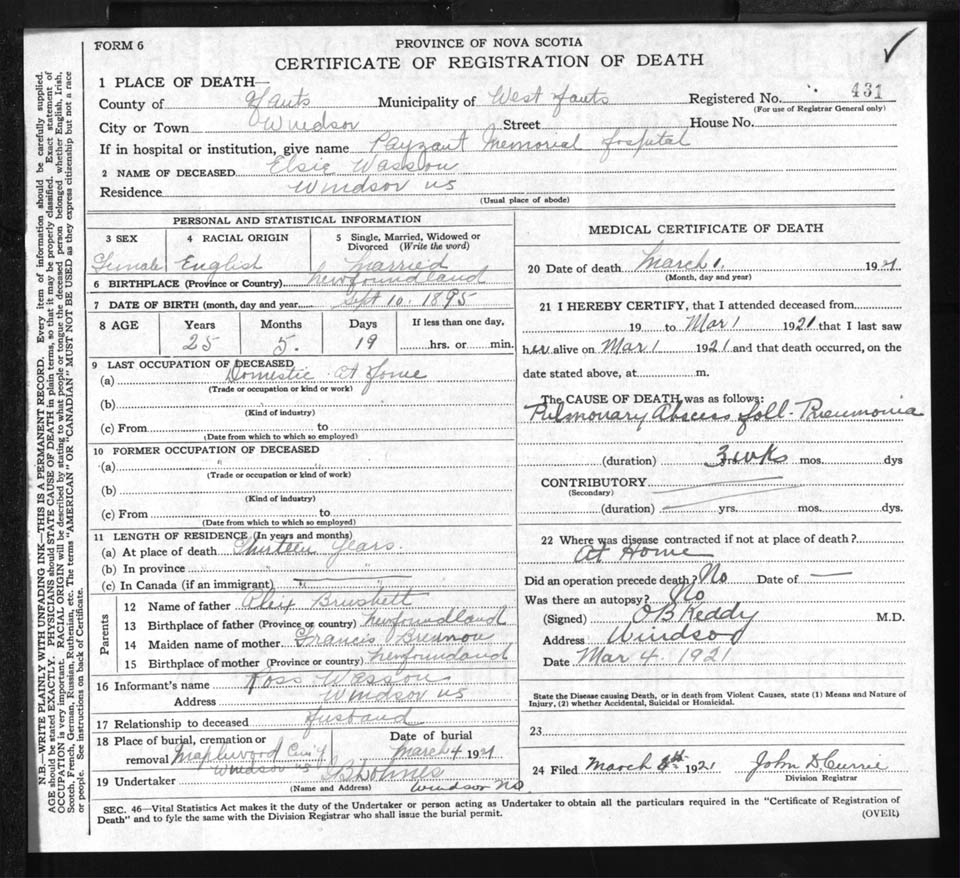 FORM 6
PROVINCE OF NOVA SCOTIA
CERTIFICATE OF REGISTRATION OF DEATH
1 PLACE OF DEATH—
County of Hants Municipality of West Hants Registered No. 431
(For use of Registrar General only)
City or Town Windsor Street House No.
If in hospital or institution, give name Payzant Memorial Hospital
2 NAME OF DECEASED Elsie Wasson
Residence Windsor NS
(Usual place of abode)
PERSONAL AND STATISTICAL INFORMATION
3 SEX 4 RACIAL ORIGIN 5 Single, Married, Widowed or Divorced (Write the word)
Female English Married
6 BIRTHPLACE (Province or Country) Newfoundland
7 DATE OF BIRTH (month, day and year) Sept 10. 1895
8 AGE Years Months Days If less than one day,
25 5. 19 hrs. or min.
9 LAST OCCUPATION OF DECEASED
(a) Domestic At Home
(Trade or occupation or kind or work)
(b)
(Kind of industry)
(c) From to
(Date from which to which so employed)
10 FORMER OCCUPATION OF DECEASED
(a) " "
(Trade or occupation or kind of work)
(b)
(Kind of industry)
(c) From to
(Date from which to which so employed)
11 LENGTH OF RESIDENCE (In years and months)
(a) At place of death Thirteen Years.
(b) In province "
(c) In Canada (if an immigrant)
Parents
12 Name of father Alex
13 Birthplace of father (Province or country) Newfoundland
14 Maiden name of mother Francis
15 Birthplace of mother (Province or country) Newfoundland
16 Informant's name Ross Wasson
Address Windsor NS
17 Relationship to deceased Husband
18 Place of burial, cremation or removal Maplewood Cem'y Windsor NS
Date of burial
March 4 1921
19 Undertaker Windsor NS
(Name and Address)
MEDICAL CERTIFICATE OF DEATH
20 Date of death March 1, 1921
(Month, day and year)
21 I HEREBY CERTIFY, that I attended deceased from
19 to Mar 1 1921 that I last saw
her alive on Mar 1 1921 and that death occurred, on the
date stated above, at m.
The CAUSE OF DEATH was as follows:
Pulmonary Abscess foll- Pneumonia
(duration) yrs. 3 wk mos. dys
CONTRIBUTORY
(Secondary)
(duration) yrs. mos. dys.
22 Where was disease contracted if not at place of death?
At Home
Did an operation precede death? No Date of —
Was there an autopsy? No
(Signed) O B Keddy M.D.
Address Windsor
Date Mar 4. 1921
State the Disease causing Death, or in death from Violent Causes, state (1) Means and Nature of
Injury, (2) whether Accidental, Suicidal or Homicidal.
23
24 Filed March 1921 John D Currie
Division Registrar
SEC. 46—Vital Statistics Act makes it the duty of the Undertaker or person acting as Undertaker to obtain all the particulars required in the "Certificate of Registration of
Death" and to fyle the same with the Division Registrar who shall issue the burial permit.
(OVER)
N.B.—WRITE PLAINLY WITH UNFADING INK—THIS IS A PERMANENT RECORD. Every item of information should be carefully supplied.
AGE should be stated EXACTLY. PHYSICIANS should STATE CAUSE OF DEATH in plain terms, so that it may be properly classified. Exact statement of
OCCUPATION is very important. RACIAL ORIGIN will be described by stating to what people or tongue the deceased person belonged whether English, Irish,
Scotch, French, German, Russian, Ruthenian, etc. The terms "AMERICAN" OR "CANADIAN" MUST NOT BE USED as they express citizenship but not a race
or people. See instructions on back of Certificate.